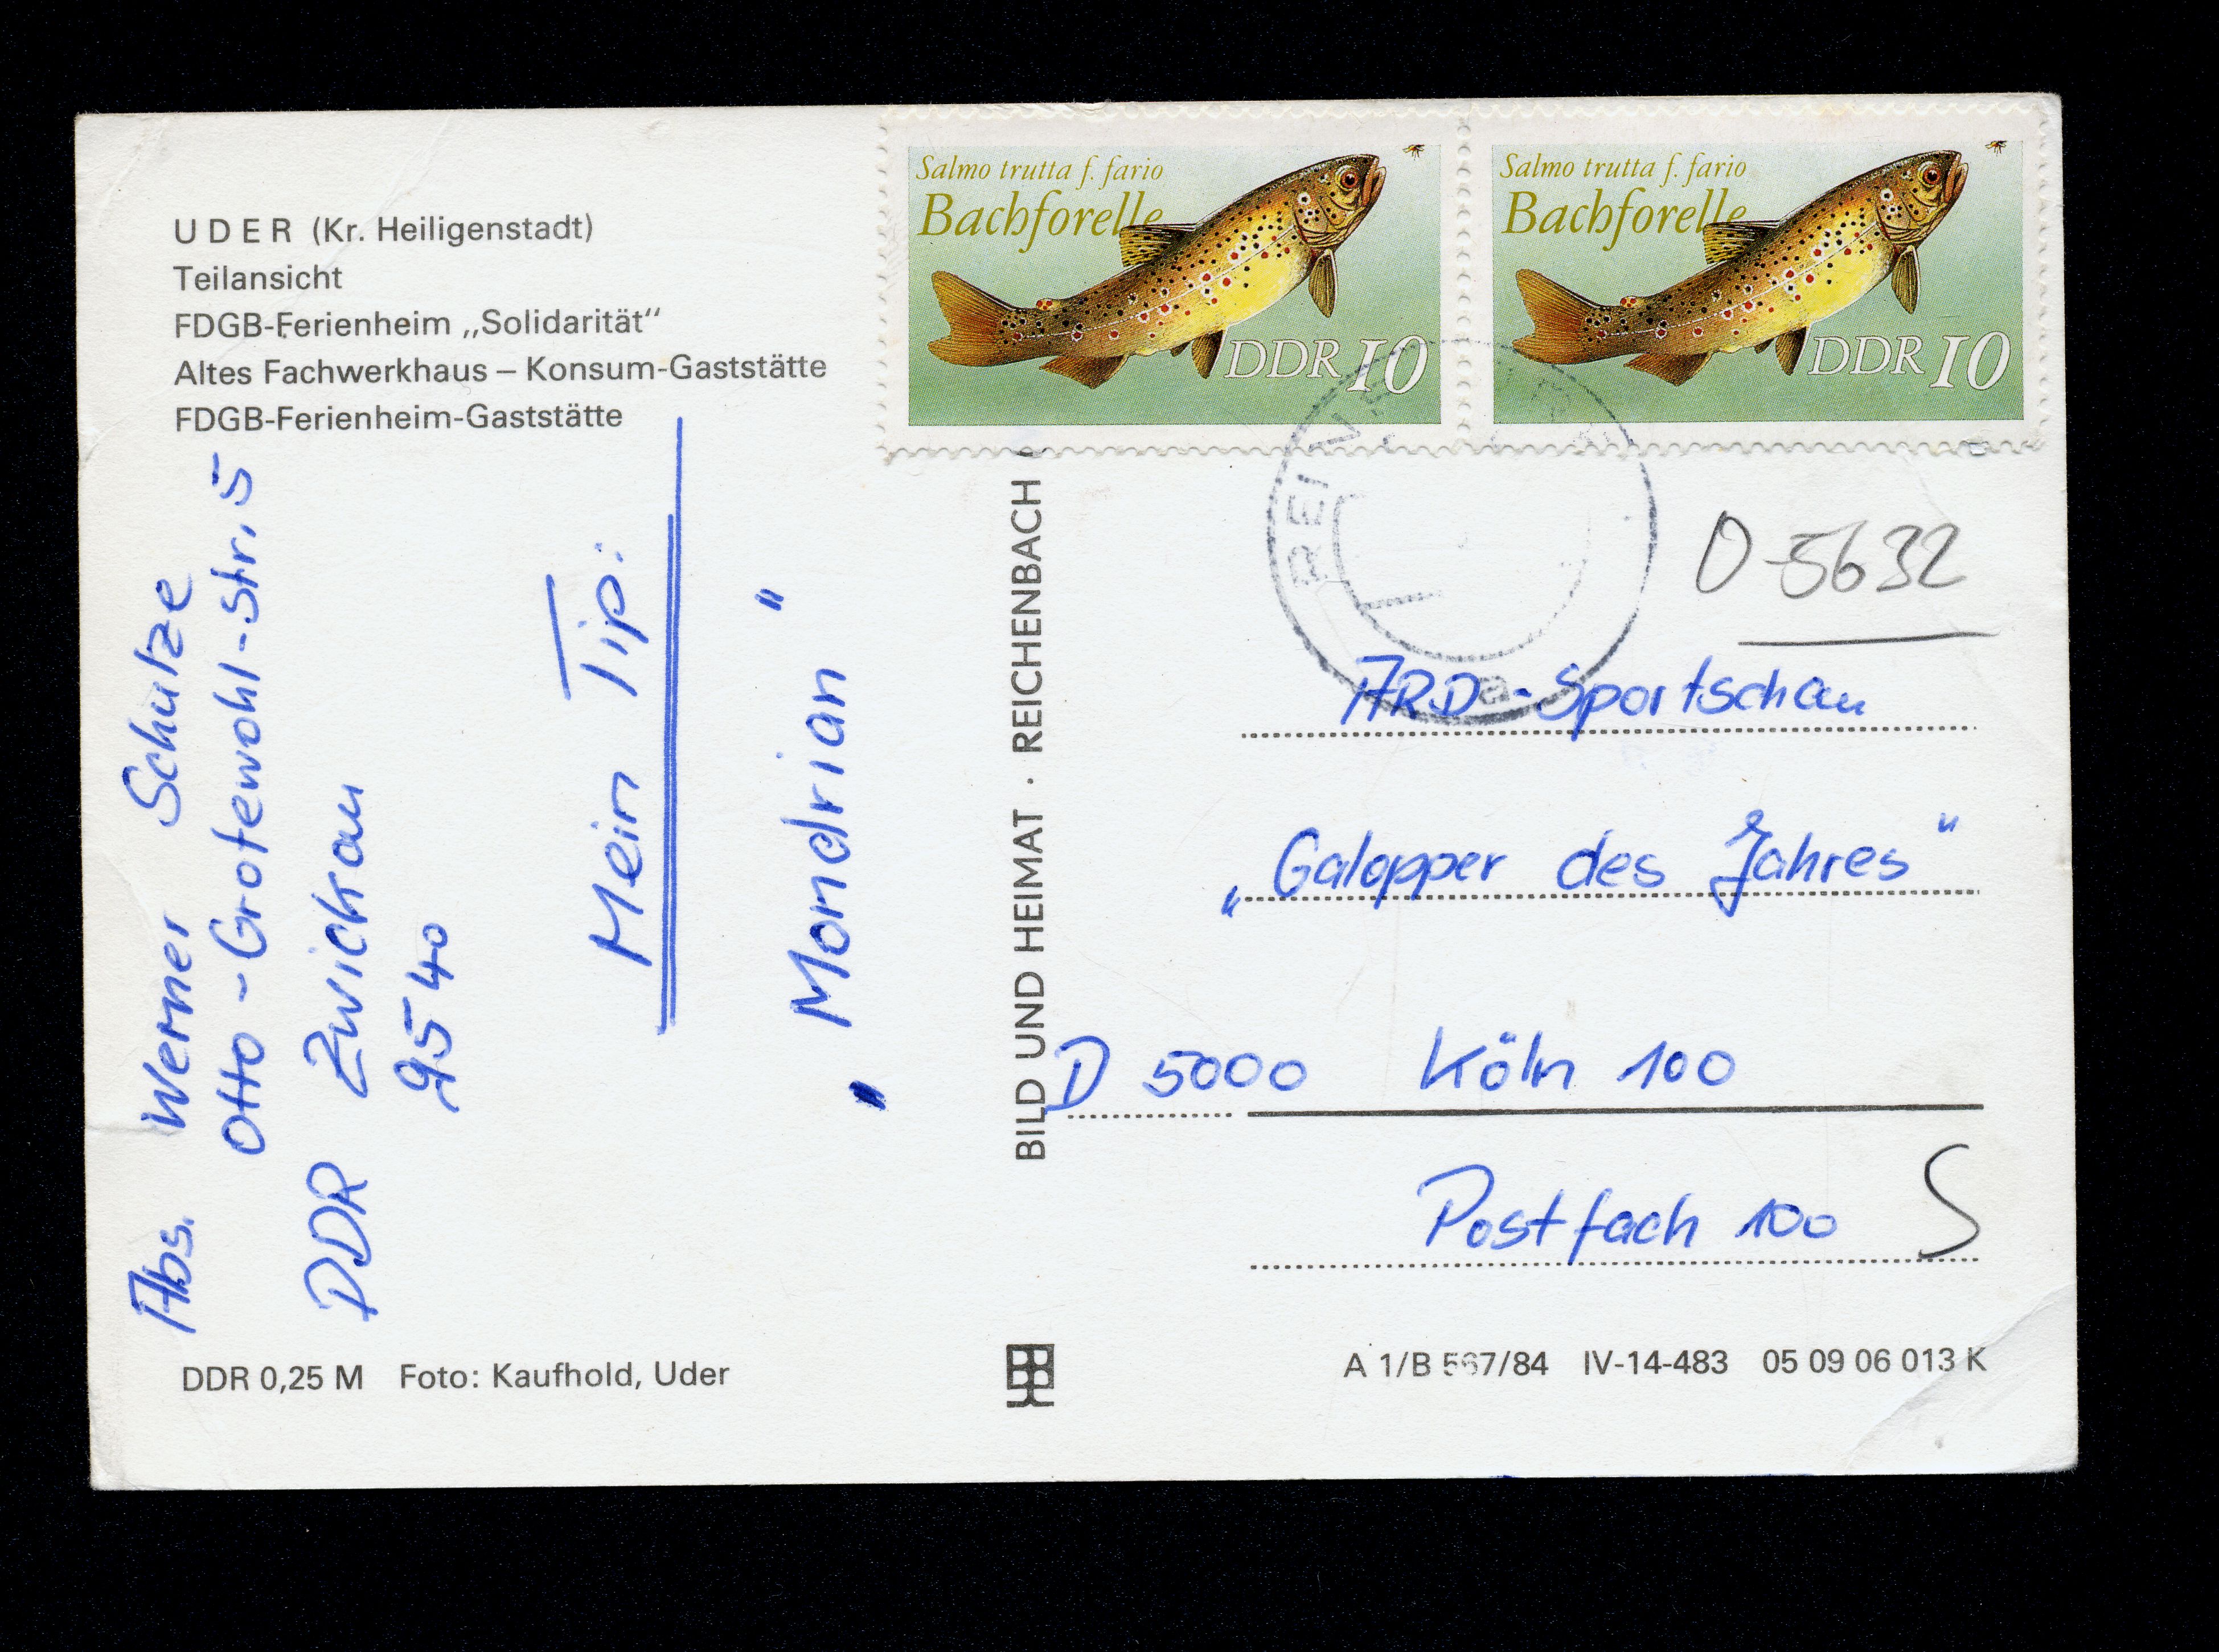 UDER (Kr. Heiligenstadt)
Teilansicht
FDGB-Ferienheim „Solidarität“
Altes Fachwerkhaus – Konsum-Gaststätte
FDGB-Ferienheim-Gaststätte
Abs. Werner Schulze
Otto-Grotewohl-Str. 5
DDR Zwickau
9540
Mein Tip:
"Mondrian"
DDR 0,25 M Foto: Kaufhold, Uder
BILD UND HEIMAT · REICHENBACH
Salmo trutta f. fario
Bachforelle
DDR 10
Salmo trutta f. fario
Bachforelle
DDR 10
a
O-5632
ARD-Sportschau
„Galopper des Jahres“
D 5000 Köln 100
Postfach 100 S
A 1/B 567/84 IV-14-483 05 09 06 013 K